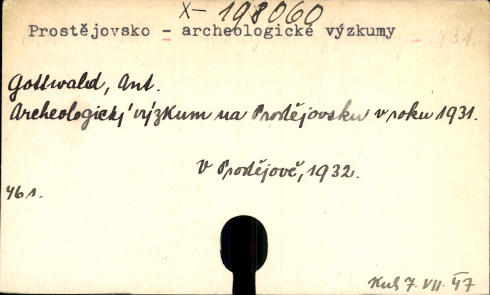 X-198060
Prostějovsko - archeologické výzkumy
Gottwald, Ant.
Archeologický výzkum na Prostějovsku v roku 1931.
V Prostějově, 1932.
46 s.
7. VII. 47